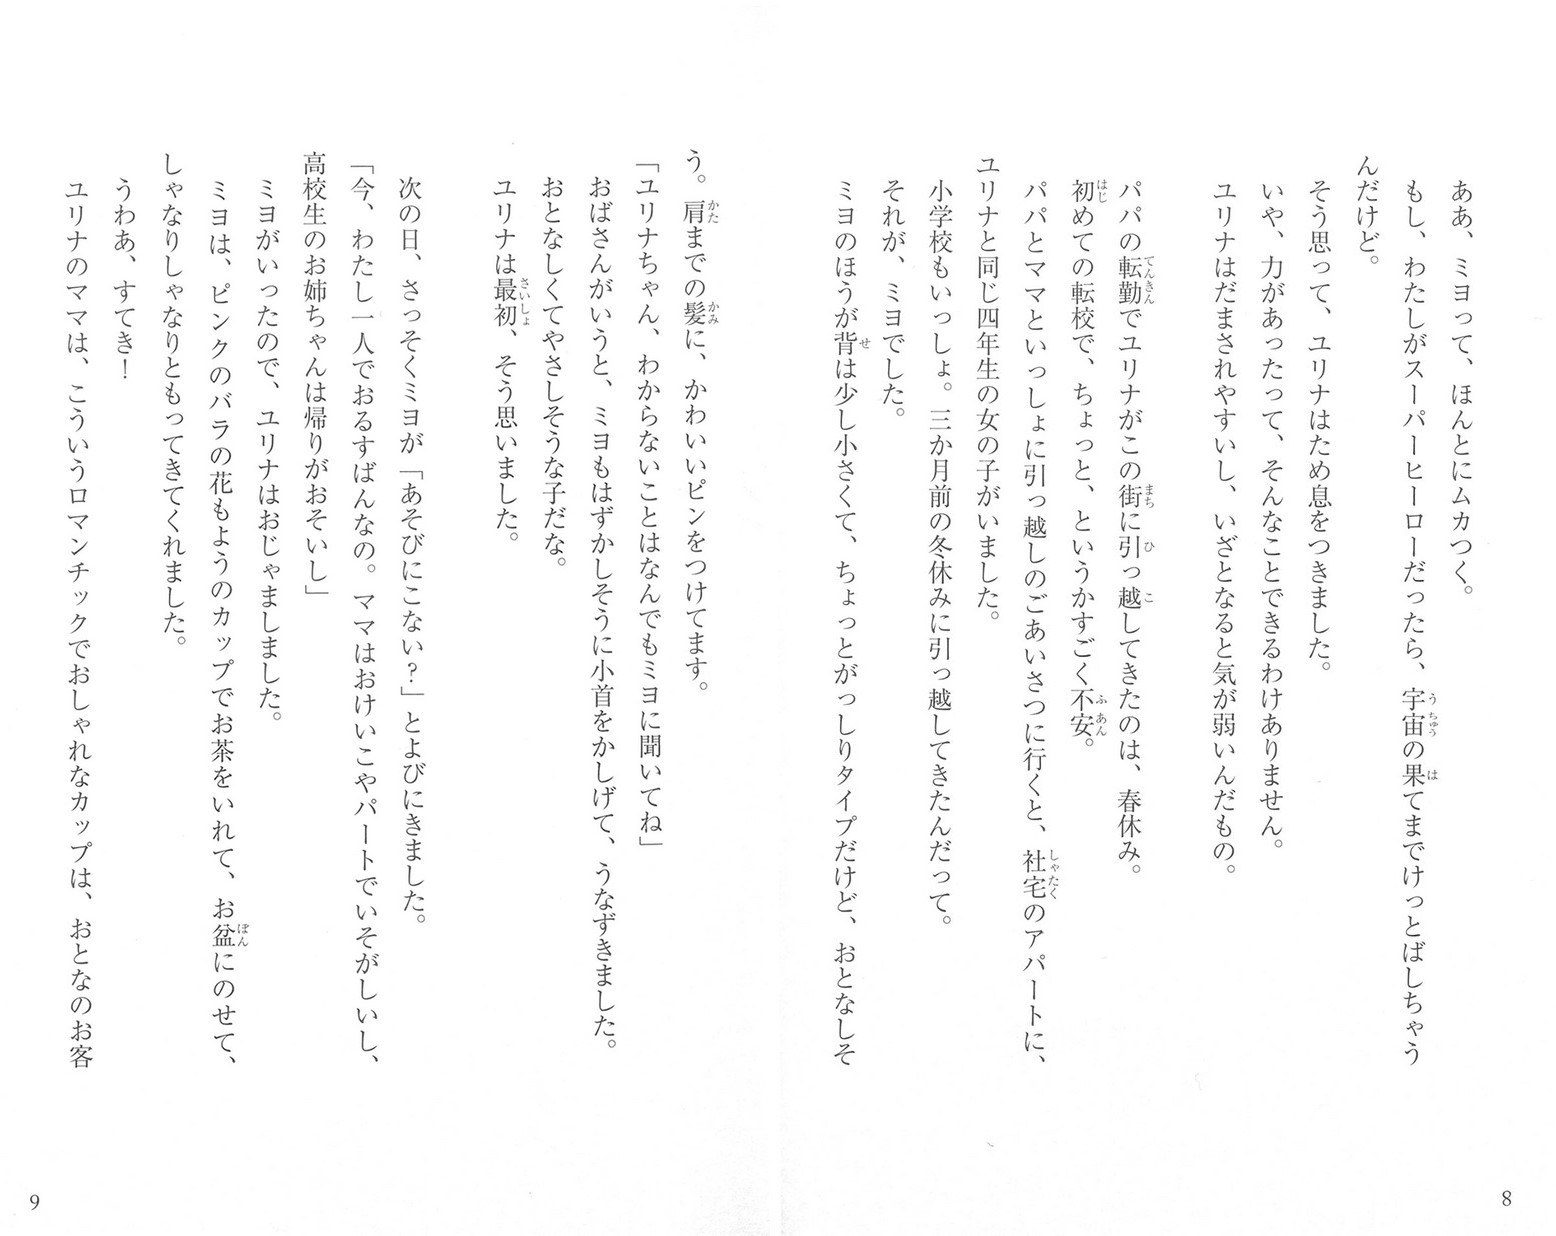 ああ、ミヨって、ほんとにムカつく。
もし、わたしがスーパーヒーローだったら、宇宙の果てまでけっとばしちゃう
んだけど。
そう思って、ユリナはため息をつきました。
いや、力があったって、そんなことできるわけありません。
ユリナはだまされやすいし、いざとなると気が弱いんだもの。
パパの転勤でユリナがこの街に引っ越してきたのは、春休み。
初めての転校で、ちょっと、というかすごく不安。
パパとママといっしょに引っ越しのごあいさつに行くと、社宅のアパートに、
ユリナと同じ四年生の女の子がいました。
小学校もいっしょ。三か月前の冬休みに引っ越してきたんだって。
それが、ミヨでした。
ミヨのほうが背は少し小さくて、ちょっとがっしりタイプだけど、おとなしそ
8
う。肩までの髪に、かわいいピンをつけてます。
「ユリナちゃん、わからないことはなんでもミヨに聞いてね」
おばさんがいうと、ミヨもはずかしそうに小首をかしげて、うなずきました。
おとなしくてやさしそうな子だな。
ユリナは最初、そう思いました。
次の日、さっそくミヨが「あそびにこない?」とよびにきました。
「今、わたし一人でおるすばんなの。ママはおけいこやパートでいそがしいし、
高校生のお姉ちゃんは帰りがおそいし」
ミヨがいったので、ユリナはおじゃましました。
ミヨは、ピンクのバラの花もようのカップでお茶をいれて、お盆にのせて、
しゃなりしゃなりともってきてくれました。
うわあ、すてき!
ユリナのママは、こういうロマンチックでおしゃれなカップは、おとなのお客
9